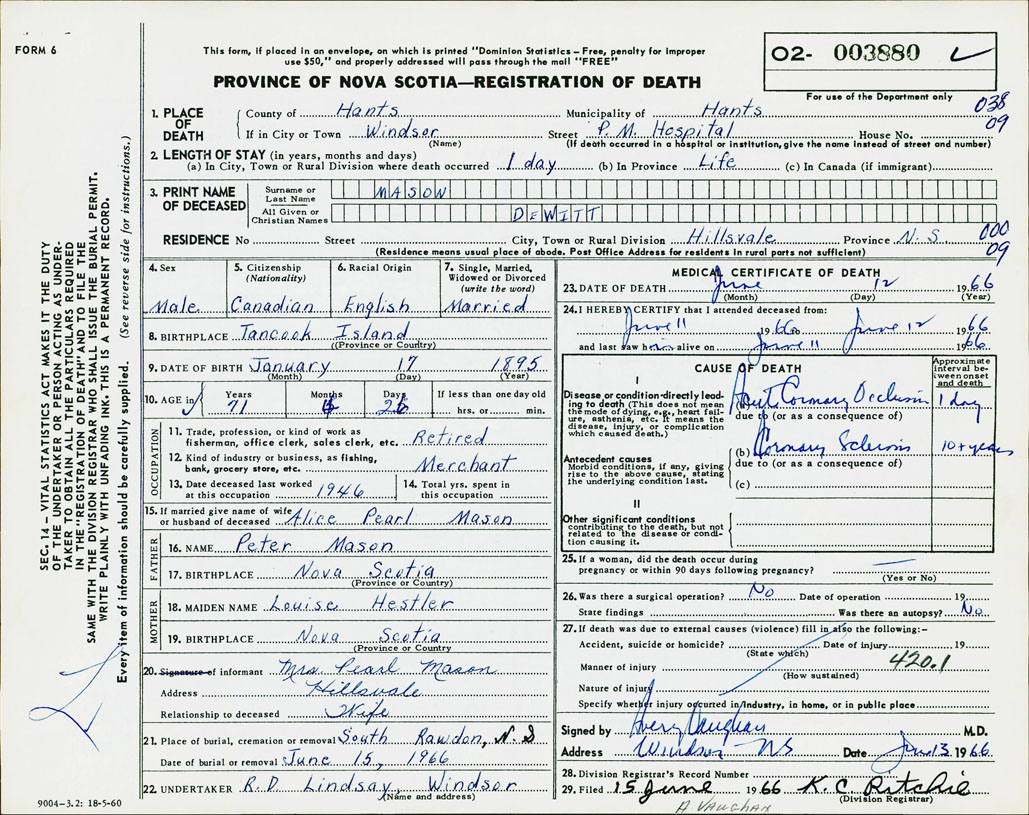 FORM 6
This form, if placed in an envelope, on which is printed "Dominion Statistics – Free, penalty for improper
use $50," and properly addressed will pass through the mail "FREE"
PROVINCE OF NOVA SCOTIA—REGISTRATION OF DEATH
02- 003880
For use of the Department only
038
09
1. PLACE OF DEATH
County of Hants Municipality of Hants
If in City or Town Windsor Street P. M. Hospital House No.
(Name) (If death occurred in a hospital or institution, give the name instead of street and number)
2. LENGTH OF STAY (in years, months and days)
(a) In City, Town or Rural Division where death occurred 1 day (b) In Province Life (c) In Canada (if immigrant)
3. PRINT NAME OF DECEASED
Surname or Last Name MASON
All Given or Christian Names DEWITT
000
09
RESIDENCE No Street City, Town or Rural Division Hillsvale Province N. S.
(Residence means usual place of abode. Post Office Address for residents in rural parts not sufficient)
4. Sex Male
5. Citizenship (Nationality) Canadian
6. Racial Origin English
7. Single, Married, Widowed or Divorced (write the word) Married
8. BIRTHPLACE Tancook Island
(Province or Country)
9. DATE OF BIRTH January 17 1895
(Month) (Day) (Year)
10. AGE in Years 71 Months Days 26 If less than one day old hrs. or min.
OCCUPATION
11. Trade, profession, or kind of work as
fisherman, office clerk, sales clerk, etc. Retired
12. Kind of industry or business, as fishing,
bank, grocery store, etc. Merchant
13. Date deceased last worked
at this occupation 1946
14. Total yrs. spent in
this occupation
15. If married give name of wife
or husband of deceased Alice Pearl Mason
FATHER
16. NAME Peter Mason
17. BIRTHPLACE Nova Scotia
(Province or Country)
MOTHER
18. MAIDEN NAME Louise Hestler
19. BIRTHPLACE Nova Scotia
(Province or Country
20. Signature of informant Mrs Pearl Mason
Address Hillsvale
Relationship to deceased Wife
21. Place of burial, cremation or removal South Rawdon, N. S
Date of burial or removal June 15, 1966
22. UNDERTAKER R. D. Lindsay, Windsor
(Name and address)
9004-3.2: 18-5-60
MEDICAL CERTIFICATE OF DEATH
23. DATE OF DEATH June 12 1966
(Month) (Day) (Year)
24. I HEREBY CERTIFY that I attended deceased from:
June 11 1966 to June 12 1966
and last saw him alive on June 11 1966
CAUSE OF DEATH
Approximate interval between onset and death
I
Disease or condition directly leading to death (This does not mean
the mode of dying, e.g., heart failure, asthenia, etc. It means the
disease, injury, or complication
which caused death.)
(a) Acute Coronary Occlusion 1 day
due to (or as a consequence of)
Antecedent causes
Morbid conditions, if any, giving
rise to the above cause, stating
the underlying condition last.
(b) Coronary Sclerosis 10 + years
due to (or as a consequence of)
(c)
II
Other significant conditions
contributing to the death, but not
related to the disease or condition causing it.
25. If a woman, did the death occur during
pregnancy or within 90 days following pregnancy? —
(Yes or No)
26. Was there a surgical operation? No Date of operation 19
State findings Was there an autopsy? No
27. If death was due to external causes (violence) fill in also the following:-
Accident, suicide or homicide? Date of injury 19
(State which)
Manner of injury 420.1
(How sustained)
Nature of injury
Specify whether injury occurred in Industry, in home, or in public place
Signed by Avery Vaughan M.D.
Address Windsor NS Date June 13 1966
28. Division Registrar's Record Number
29. Filed 15 June 1966 K. C. Ritchie
(Division Registrar)
A VAUGHAN
SEC. 14 – VITAL STATISTICS ACT MAKES IT THE DUTY
OF THE UNDERTAKER OR PERSON ACTING AS UNDERTAKER TO OBTAIN ALL THE PARTICULARS REQUIRED
IN THE "REGISTRATION OF DEATH" AND TO FILE THE
SAME WITH THE DIVISION REGISTRAR WHO SHALL ISSUE THE BURIAL PERMIT.
WRITE PLAINLY WITH UNFADING INK. THIS IS A PERMANENT RECORD.
Every item of information should be carefully supplied. (See reverse side for instructions.)